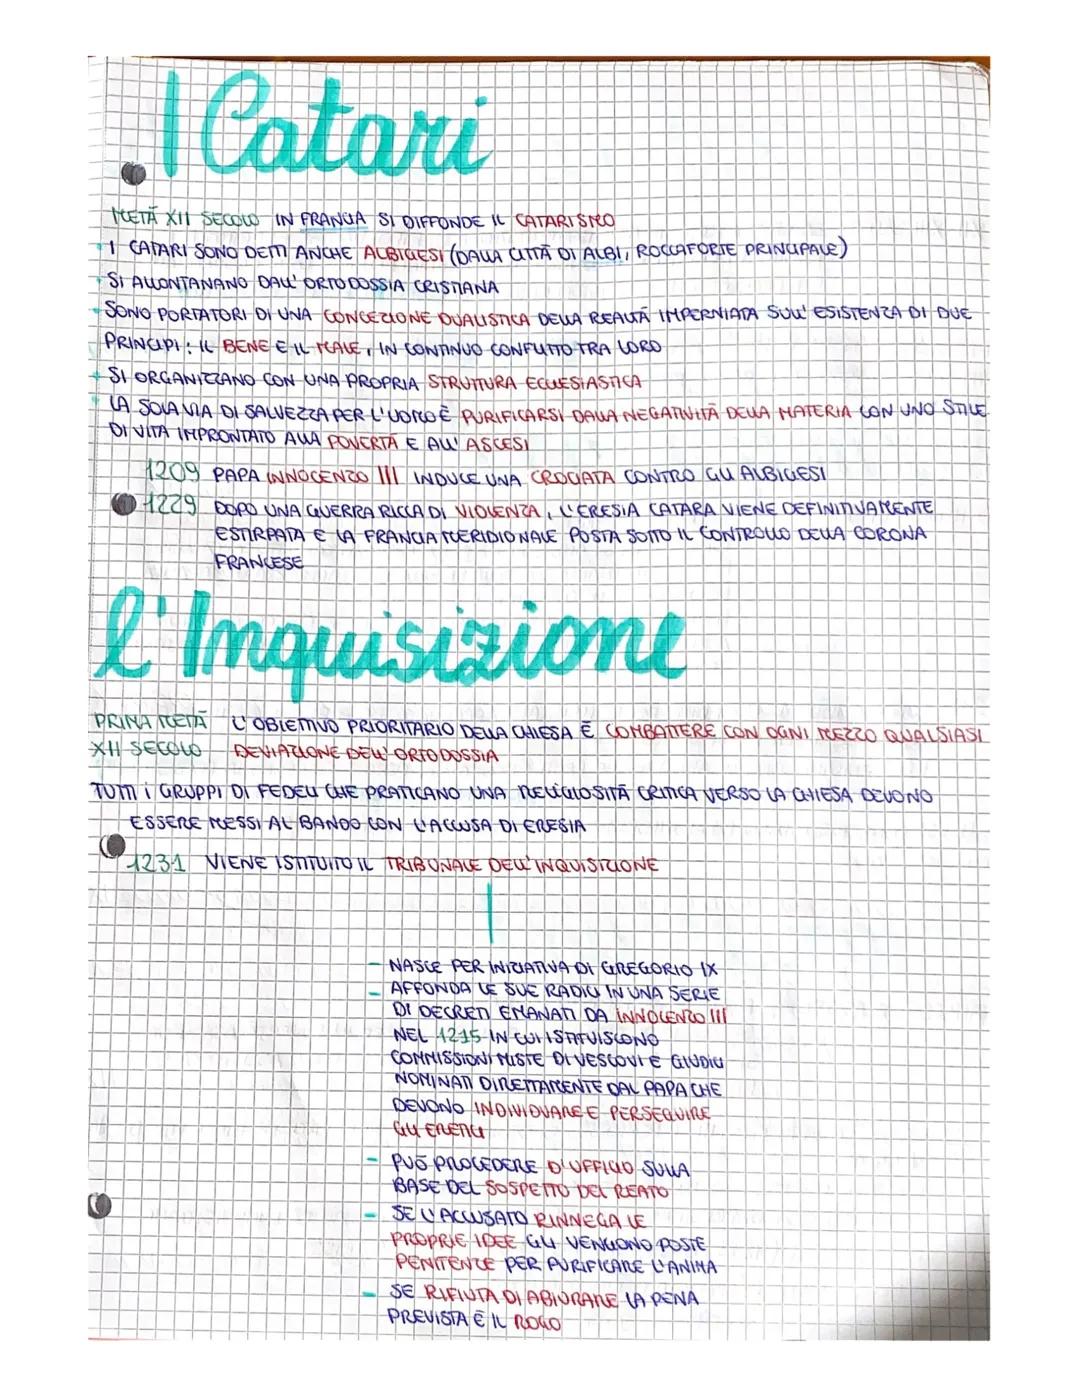 I Catari
METÀ XII SECOLO IN FRANCIA SI DIFFONDE IL CATARISMO
I CATARI SONO DETTI ANCHE ALBIGESI (DALLA CITTÀ DI ALBI, ROCCAFORTE PRINCIPALE)
SI ALLONTANANO DALL'ORTODOSSIA CRISTIANA
SONO PORTATORI DI UNA CONCEZIONE DUALISTICA DELLA REALTÀ IMPERNIATA SULL'ESISTENZA DI DUE
PRINCIPI: IL BENE E IL MALE, IN CONTINUO CONFLITTO TRA LORO
SI ORGANIZZANO CON UNA PROPRIA STRUTTURA ECCLESIASTICA
LA SOLA VIA DI SALVEZZA PER L'UOMO È PURIFICARSI DALLA NEGATIVITÀ DELLA MATERIA CON UNO STILE
DI VITA IMPRONTATO ALLA POVERTÀ E ALL'ASCESI
1209 PAPA INNOCENZO III INDUCE UNA CROCIATA CONTRO GLI ALBIGESI
1229 DOPO UNA GUERRA RICCA DI VIOLENZA, L'ERESIA CATARA VIENE DEFINITIVAMENTE
ESTIRPATA E LA FRANCIA MERIDIONALE POSTA SOTTO IL CONTROLLO DELLA CORONA
FRANCESE
l'Inquisizione
PRIMA METÀ L'OBIETTIVO PRIORITARIO DELLA CHIESA È COMBATTERE CON OGNI MEZZO QUALSIASI
XII SECOLO DEVIAZIONE DELL'ORTODOSSIA
TUTTI I GRUPPI DI FEDELI CHE PRATICANO UNA RELIGIOSITÀ CRITICA VERSO LA CHIESA DEVONO
ESSERE MESSI AL BANDO CON L'ACCUSA DI ERESIA
1231 VIENE ISTITUITO IL TRIBUNALE DELL'INQUISIZIONE
- NASCE PER INIZIATIVA DI GREGORIO IX
- AFFONDA LE SUE RADICI IN UNA SERIE
DI DECRETI EMANATI DA INNOCENZO III
NEL 1215 IN CUI ISTITUISCONO
COMMISSIONI MISTE DI VESCOVI E GIUDICI
NOMINATI DIRETTAMENTE DAL PAPA CHE
DEVONO INDIVIDUARE E PERSEGUIRE
GLI ERETICI
- PUÒ PROCEDERE D'UFFICIO SULLA
BASE DEL SOSPETTO DEL REATO
- SE L'ACCUSATO RINNEGA LE
PROPRIE IDEE GLI VENGONO POSTE
PENITENZE PER PURIFICARE L'ANIMA
- SE RIFIUTA DI ABIURARE LA PENA
PREVISTA È IL ROGO